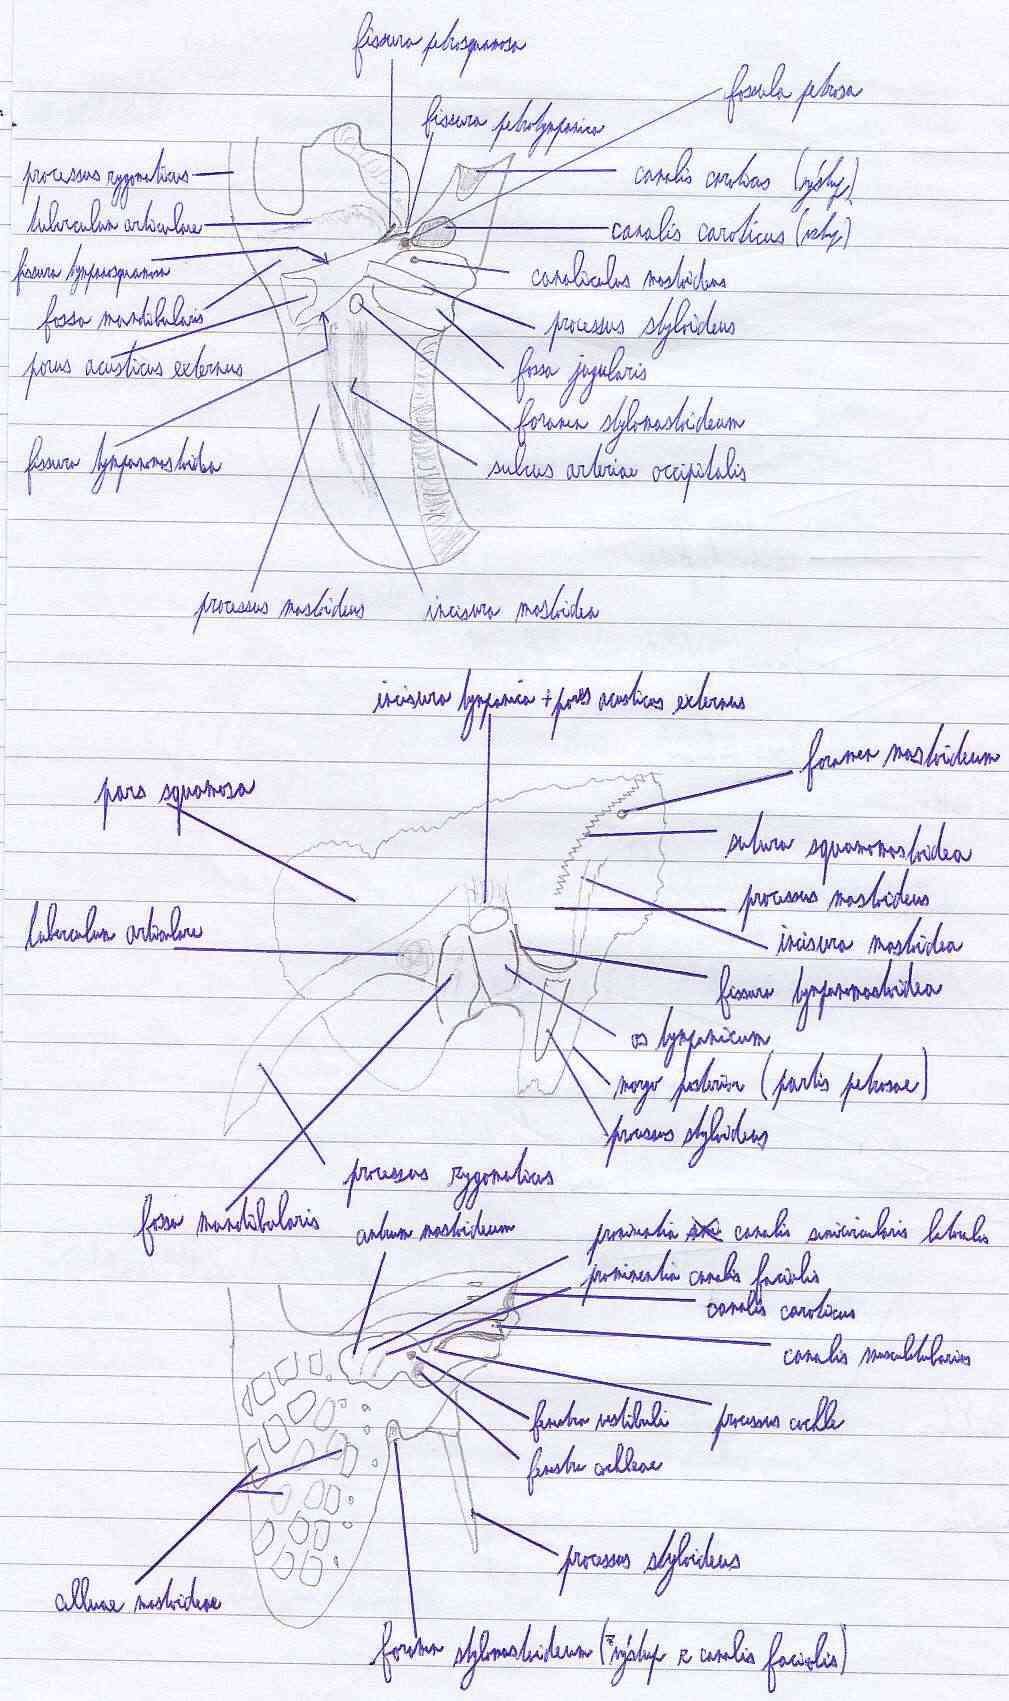 fissura petrosquamosa
fossula petrosa
fissura petrotympanica
processus zygomaticus
canalis caroticus (výstup)
tuberculum articulare
canalis caroticus (vstup)
fissura tympanosquamosa
canaliculus mastoideus
fossa mandibularis
processus styloideus
porus acusticus externus
fossa jugularis
foramen stylomastoideum
fissura tympanomastoidea
sulcus arteriae occipitalis
processus mastoideus
incisura mastoidea
incisura tympanica + porus acusticus externus
foramen mastoideum
pars squamosa
sutura squamomastoidea
processus mastoideus
tuberculum articulare
incisura mastoidea
fissura tympanomastoidea
os tympanicum
margo posterior (partis petrosae)
processus styloideus
processus zygomaticus
fossa mandibularis
antrum mastoideum
prominentia canalis semicircularis lateralis
prominentia canalis facialis
canalis caroticus
canalis musculotubarius
fenestra vestibuli
processus cochle
fenestra cochleae
processus styloideus
cellulae mastoideae
foramen stylomastoideum (výstup z canalis facialis)